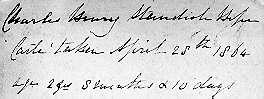 Charles Henry Standish
Carte taken April 28th 1864
age 2 yrs 8 months & 10 days